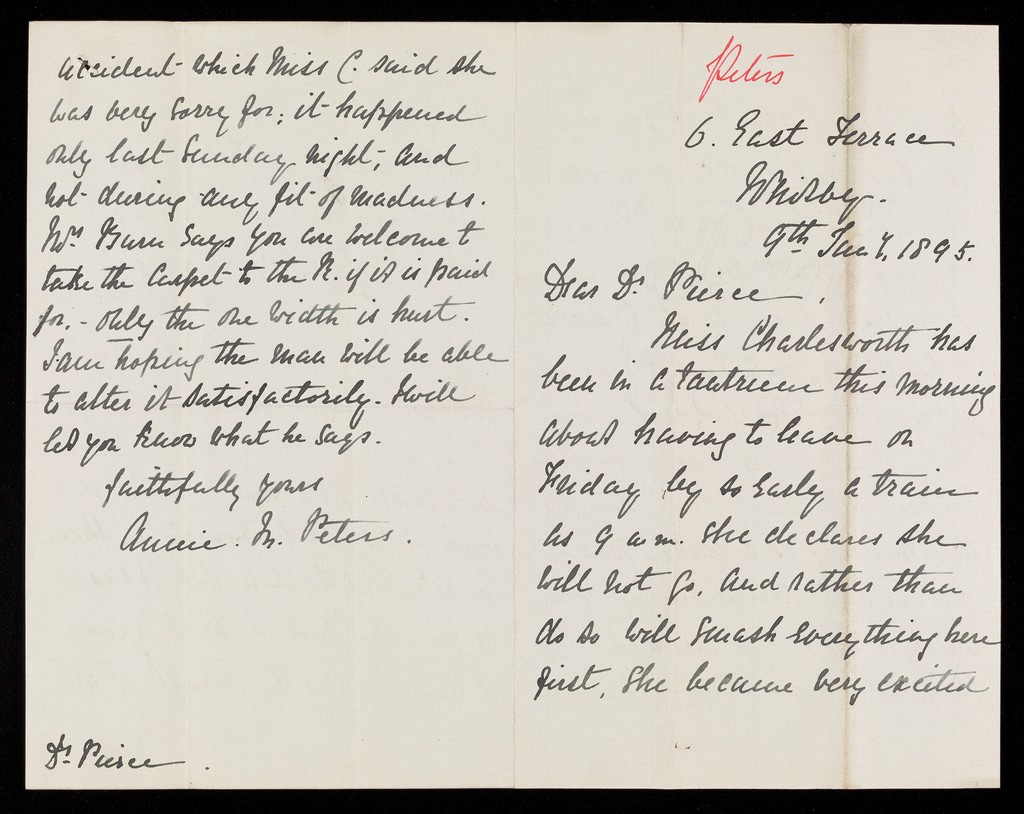 Peters
6. East Terrace
Whitby.
9th Jany, 1895.
Dear Dr Pierce,
Miss Charlesworth has
been in a tantrum this morning
about having to leave on
Friday by so early a train
as 9 a.m. She declares she
will not go, and rather than
do so will smash everything here
first, She became very excited
accident which Miss C. said she
was very sorry for; it happened
only last Sunday night, and
not during any fit of madness.
Mrs says you are welcome to
take the carpet to the R. if it is paid
for, - only the one width is hurt.
I am hoping the man will be able
to alter it satisfactorily. I will
let you know what he says.
faithfully yours
Annie. M. Peters.
Dr Pierce.